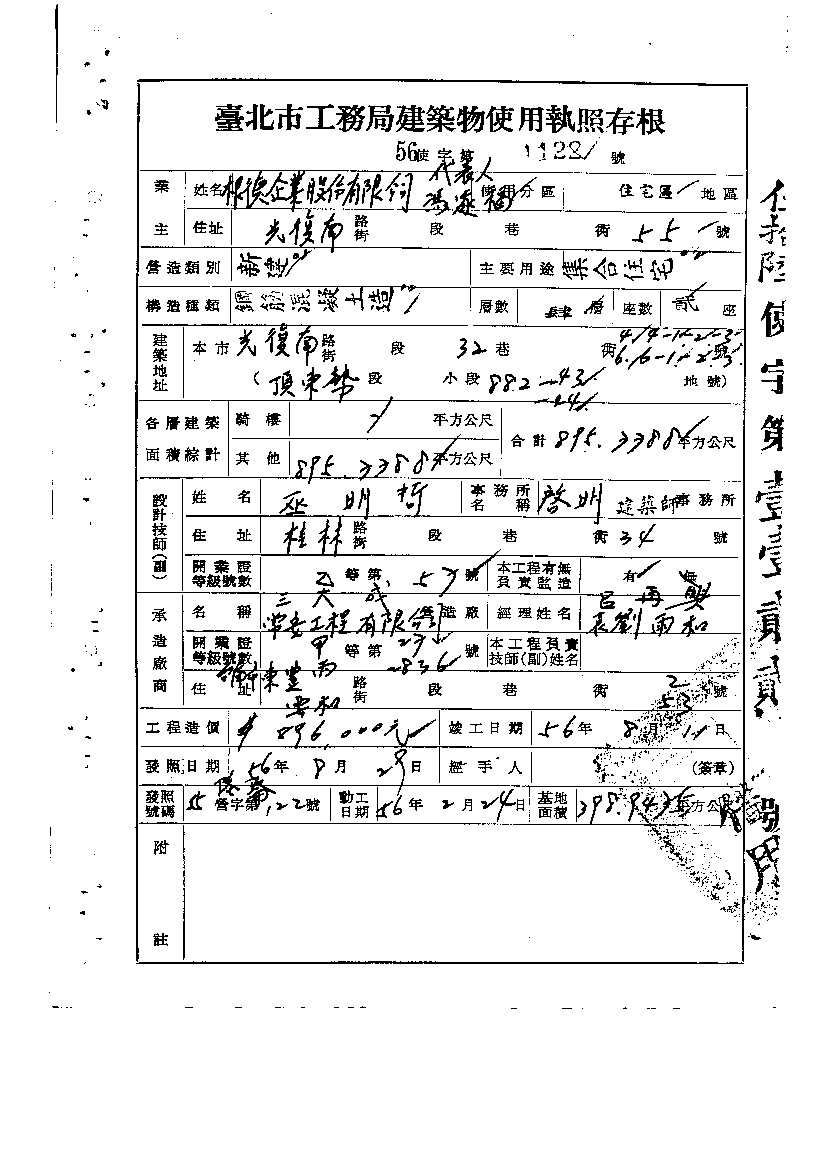 臺北市工務局建築物使用執照存根
56使字第 1122 號
業主 姓名 根德企業股份有限公司 代表人 馮 福 使用分區 住宅區 地區
住址 光復南 路街 段 巷 街 55 號
營造類別 新建 主要用途 集合住宅
構造種類 鋼筋混凝土造 層數 肆層 座數 貳 座
建築地址 本市 光復南 路街 段 32 巷 街 4.4-1.-2.-3. 6.6-1.-2.-3. 號
(頂東勢 段 小段 882-43 -44 地號)
各層建築面積綜計 騎樓 平方公尺 合計 895.3388 平方公尺
其他 895.3388 平方公尺
設計技師(副) 姓名 巫明哲 事務所名稱 啓明 建築師 事務所
住址 桂林 路街 段 巷 街 34 號
開業證等級號數 乙 等第 57 號 本工程有無負責監造 有 無
承造廠商 名稱 三大成 工程有限公司 營造廠 經理姓名 呂再興 長劉雨和
開業證等級號數 甲 等第 836 號 本工程負責技師(副)姓名
住址 東豐 路街 段 巷 街 2 53 號
工程造價 $896,000元 竣工日期 56年 8月 11日
發照日期 56年 8月 29日 經手人 (簽章)
發照號碼 55 營字第 122號 動工日期 56年 2月 24日 基地面積 398.9435 平方公尺
附註
伍拾陸使字第壹壹貳貳號